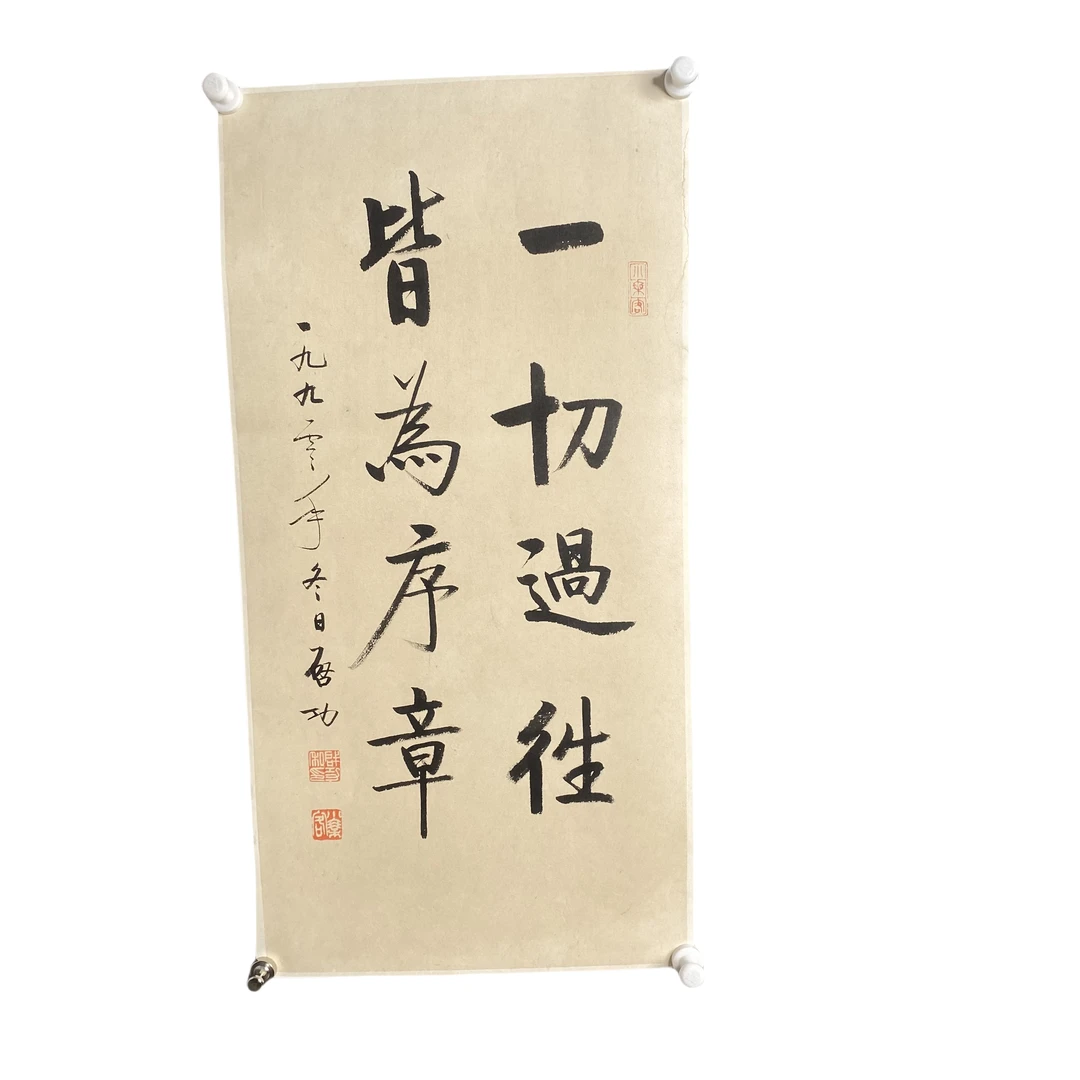 一切過往
皆為序章
一九九零年冬日啟功